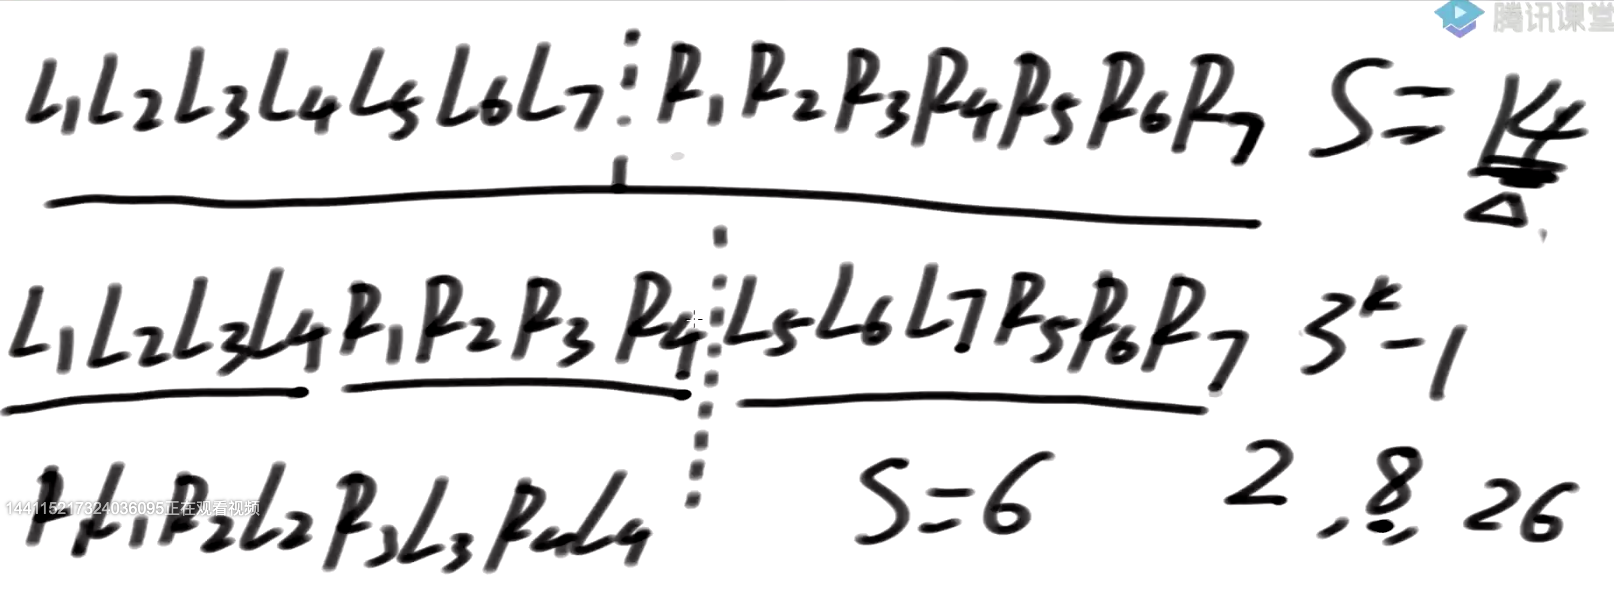 腾讯课堂
L1L2L3L4L5L6L7 R1R2R3R4R5R6R7 S=14
L1L2L3L4R1R2R3R4 L5L6L7R5R6R7 3^k-1
R1L1R2L2R3L3R4L4 S=6 2,8,26
144115217324036095正在观看视频